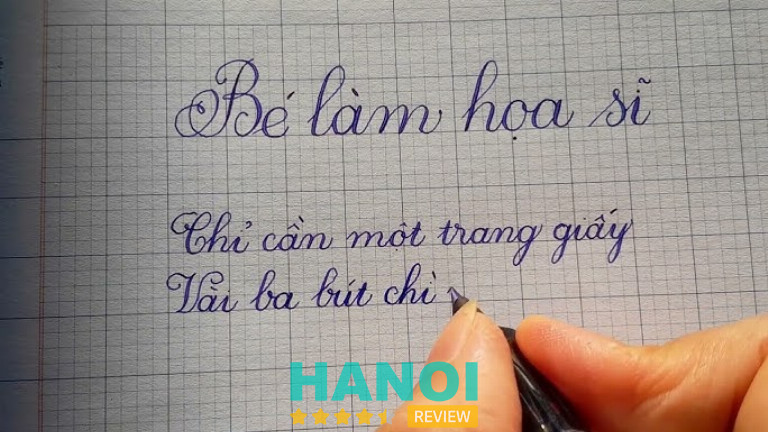 Bé làm họa sĩ
Chỉ cần một trang giấy
Vài ba bút chì
HANOI
REVIEW